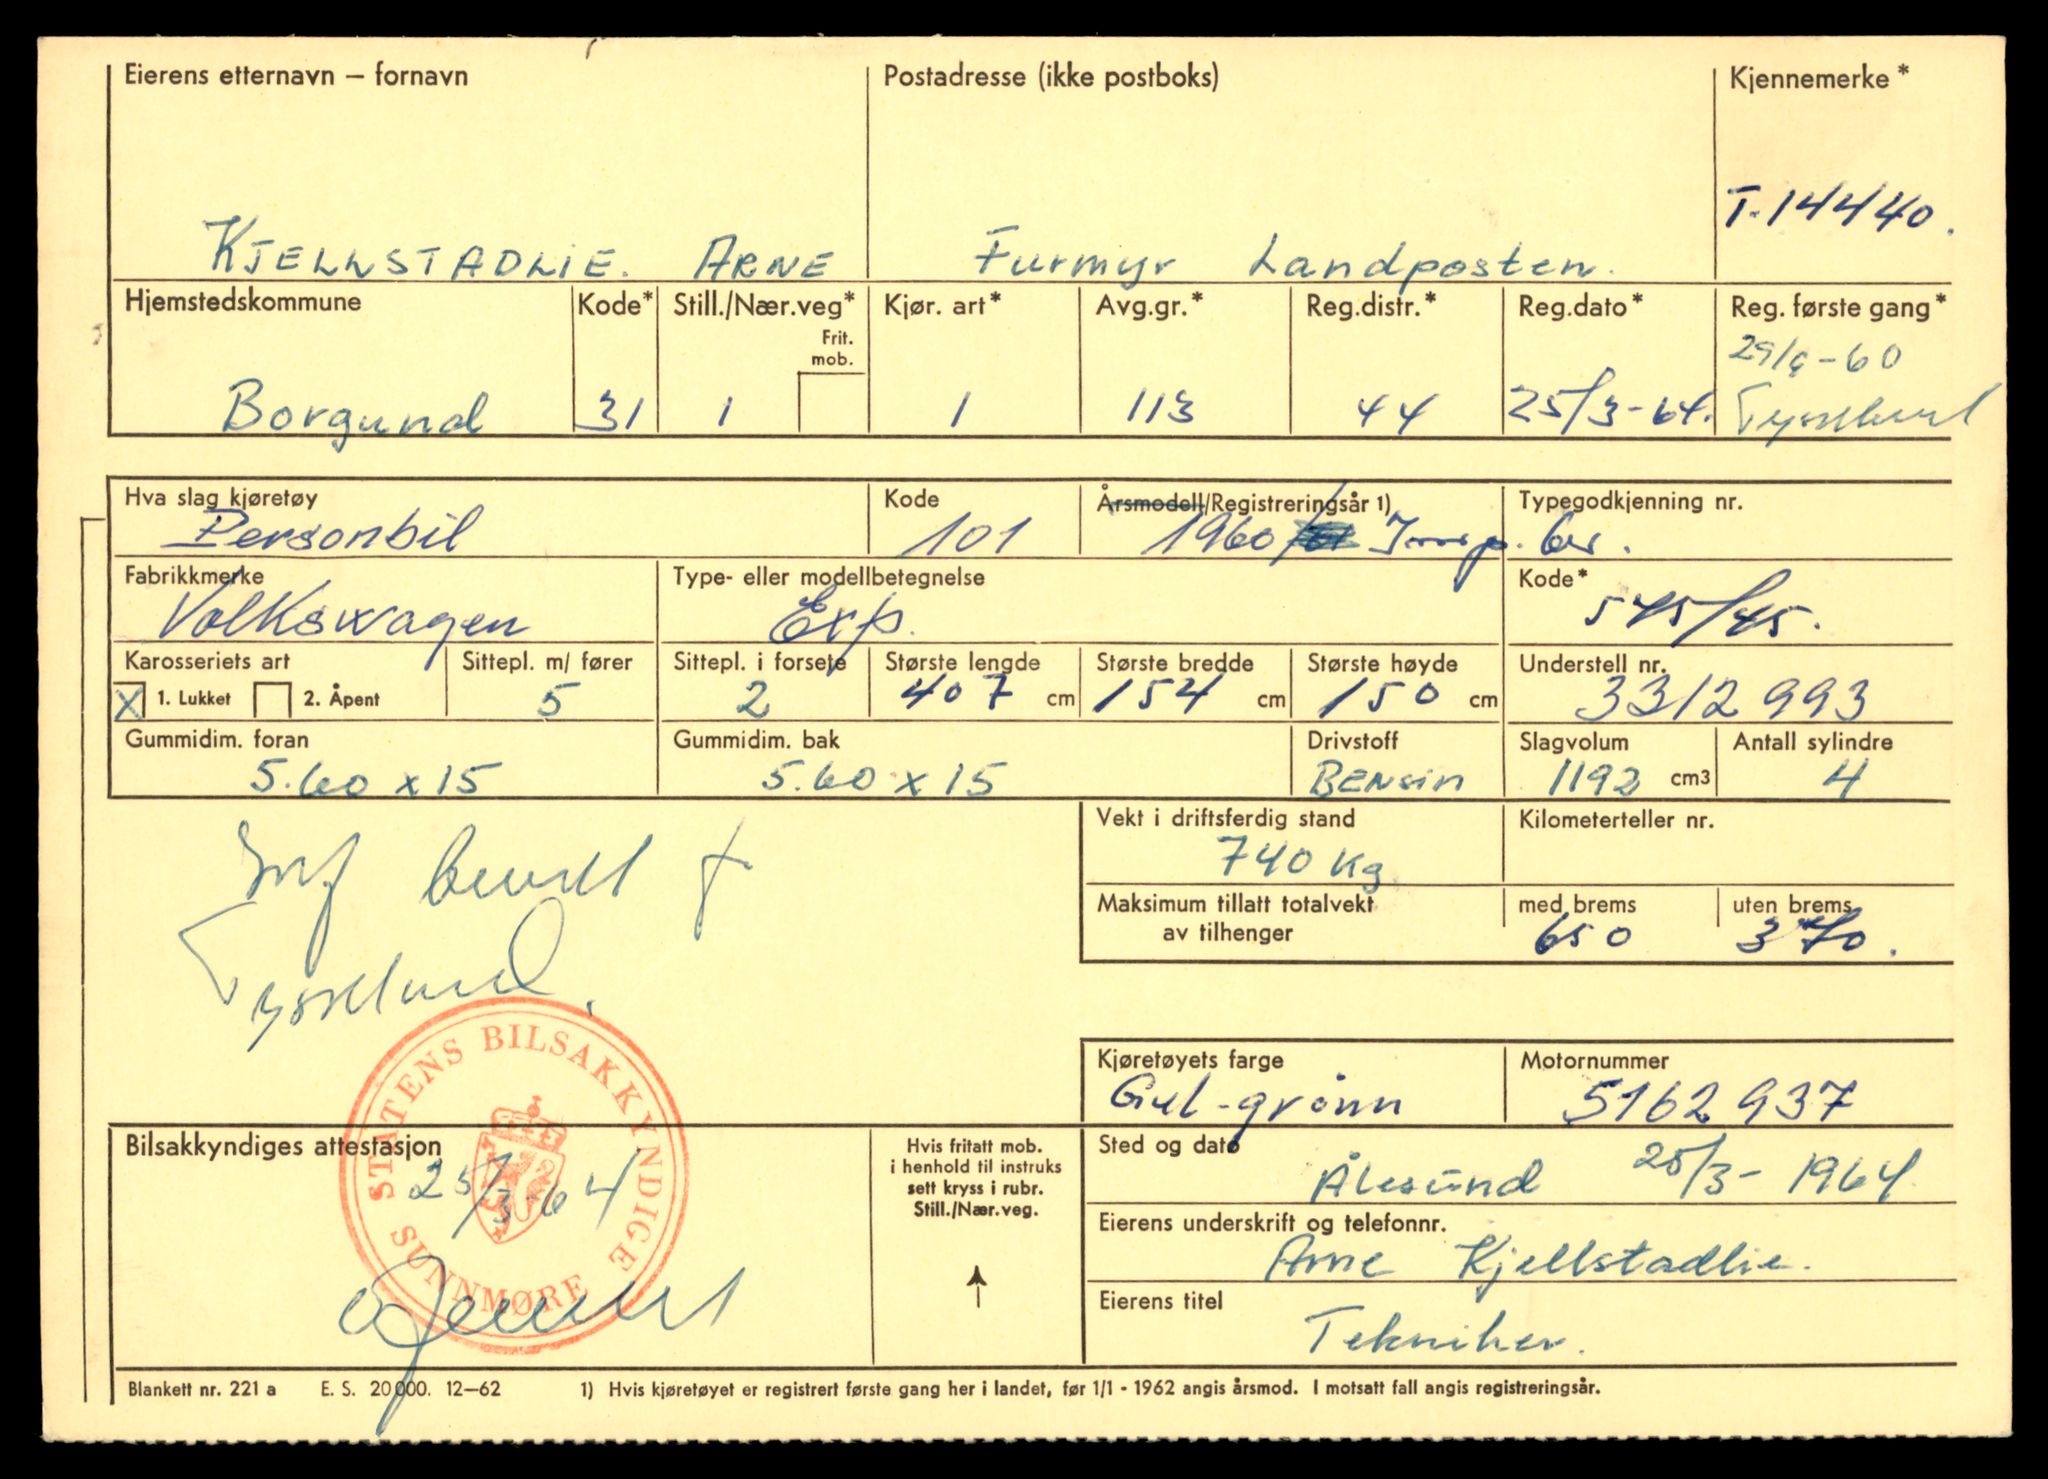 Eierens etternavn – fornavn Postadresse (ikke postboks) Kjennemerke*
T-14440.
KJELLSTADLIE. ARNE Furmyr Landposten.
Hjemstedskommune Kode* Still./Nær.veg* Kjør. art* Avg.gr.* Reg.distr.* Reg.dato* Reg. første gang*
Frit. mob.
29/9-60
Borgund 31 1 1 113 44 25/3-64. Tyssklund
Hva slag kjøretøy Kode Årsmodell/Registreringsår 1) Typegodkjenning nr.
Personbil 101 1960/ Imp.
Fabrikkmerke Type- eller modellbetegnelse Kode*
Volkswagen Exp. 545/45.
Karosseriets art Sittepl. m/ fører Sittepl. i forsete Største lengde Største bredde Største høyde Understell nr.
X 1. Lukket 2. Åpent 5 2 407 cm 154 cm 150 cm 3312993
Gummidim. foran Gummidim. bak Drivstoff Slagvolum Antall sylindre
5.60 x 15 5.60 x 15 BENSIN 1192 cm3 4
Vekt i driftsferdig stand Kilometerteller nr.
740 Kg
Maksimum tillatt totalvekt med brems uten brems
av tilhenger 650 370.
Tysskland.
STATENS BILSAKKYNDIGE SUNNMØRE
Kjøretøyets farge Motornummer
Gul-grønn 5162937
Bilsakkyndiges attestasjon
25/3-64
Hvis fritatt mob.
i henhold til instruks
sett kryss i rubr.
Still./Nær.veg.
Sted og dato
Ålesund 25/3-1964.
Eierens underskrift og telefonnr.
Arne Kjellstadlie.
Eierens titel
Tekniker.
Blankett nr. 221 a E. S. 20000. 12–62 1) Hvis kjøretøyet er registrert første gang her i landet, før 1/1 - 1962 angis årsmod. I motsatt fall angis registreringsår.